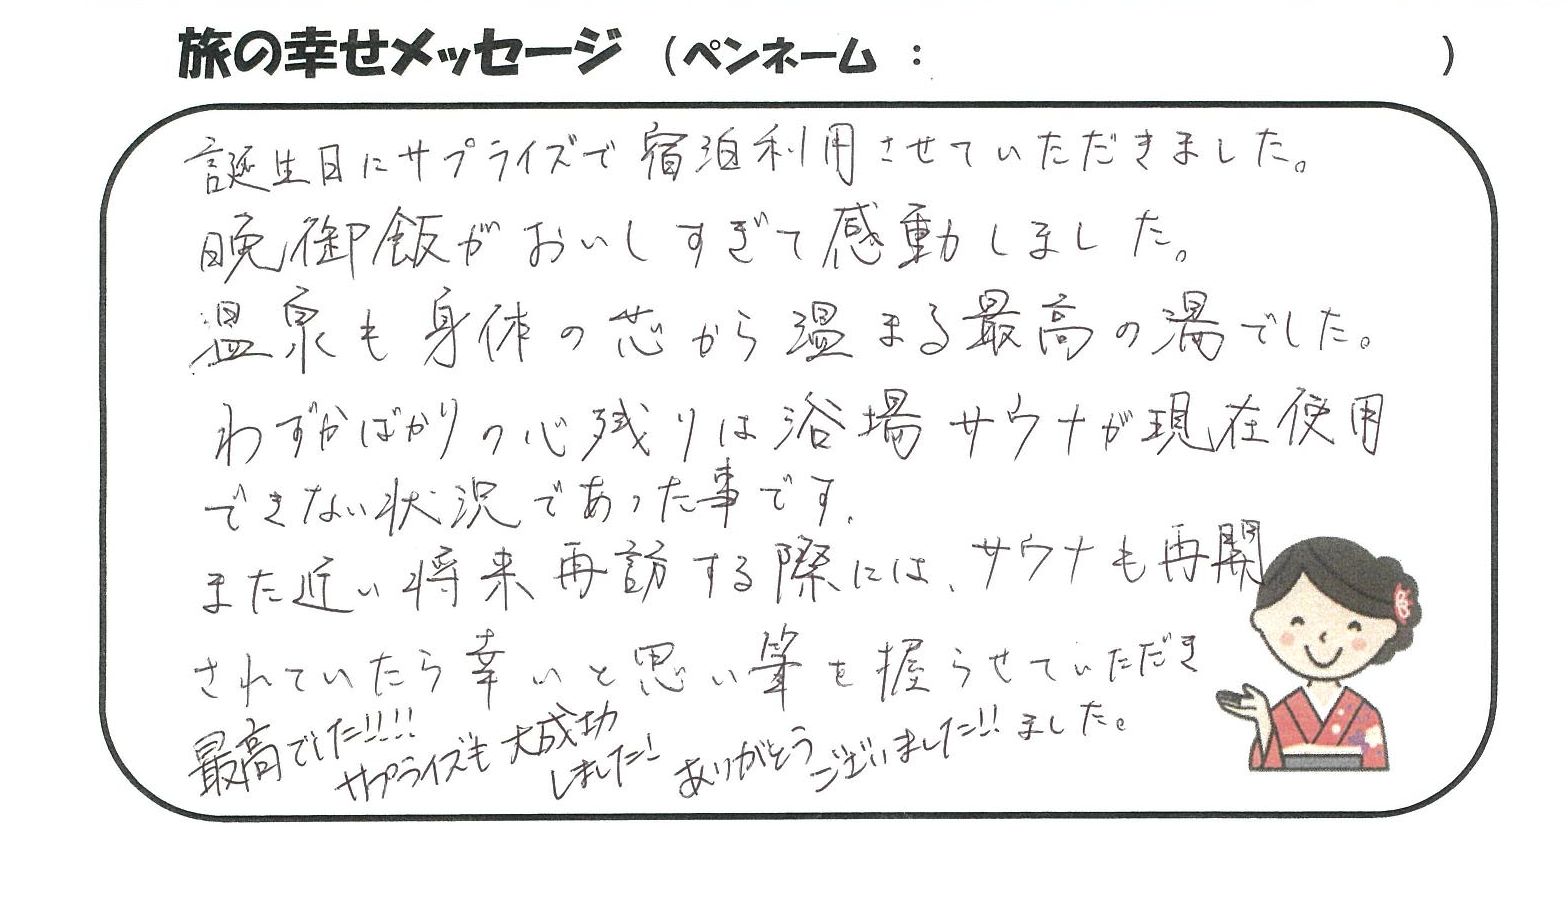 旅の幸せメッセージ (ペンネーム : )
誕生日にサプライズで宿泊利用させていただきました。
晩御飯がおいしすぎて感動しました。
温泉も身体の芯から温まる最高の湯でした。
わずかばかりの心残りは浴場サウナが現在使用
できない状況であった事です.
また近い将来再訪する際には、サウナも再開
されていたら幸いと思い筆を握らせていただき
ました。
最高でした!!!!
サプライズも大成功
しました!
ありがとう
ございました!!